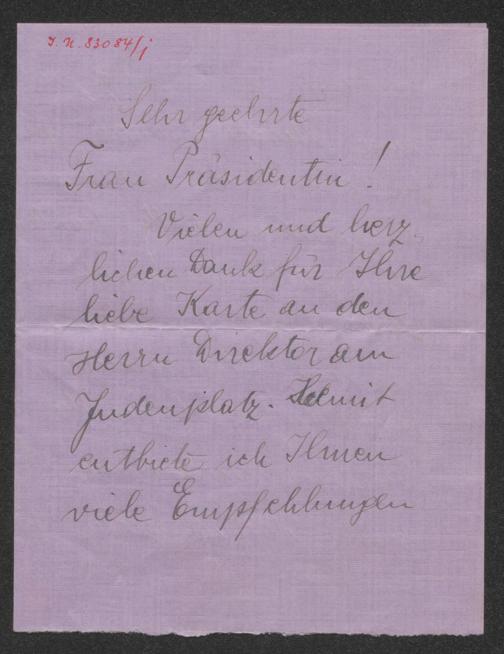 J. N. 83084/j
Sehr geehrte
Frau Präsidentin!
Vielen und herz-
lichen Dank für Ihre
liebe Karte an den
Herrn Direktor am
Judenplatz.
entbiete ich Ihnen
viele Empfehlungen